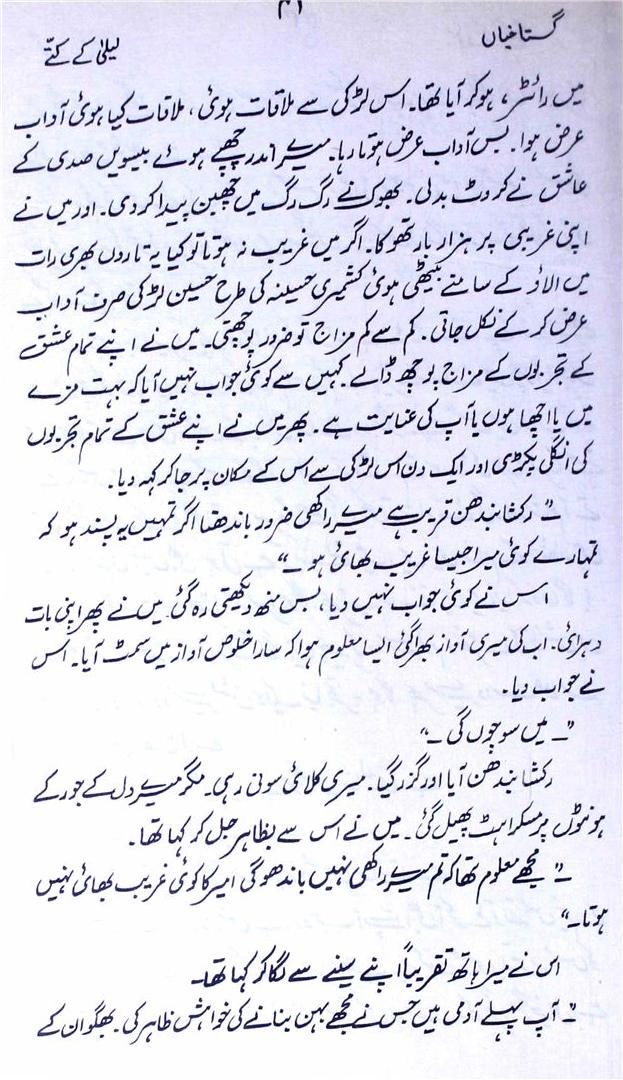 ۴۱
گستاخیاں
لیلیٰ کے کتے
میں رائٹر، ہوکر آیا تھا۔ اس لڑکی سے ملاقات ہوئی، ملاقات کیا ہوئی آداب
عرض ہوا۔ بس آداب عرض ہوتا رہا۔ میرے اندر چھپے ہوئے بیسویں صدی کے
عاشق نے کروٹ بدلی۔ بھوک نے رگ رگ میں چھبن پیدا کر دی۔ اور میں نے
اپنی غریبی پر ہزار بار تھوکا۔ اگر میں غریب نہ ہوتا تو کیا یہ تاروں بھری رات
میں الاؤ کے سامنے بیٹھی ہوئی کشمیری حسینہ کی طرح حسین لڑکی صرف آداب
عرض کر کے نکل جاتی۔ کم سے کم مزاج تو ضرور پوچھتی۔ میں نے اپنے تمام عشق
کے تجربوں کے مزاج پوچھ ڈالے۔ کہیں سے کوئی جواب نہیں آیا کہ بہت مزے
میں یا اچھا ہوں یا آپ کی عنایت ہے۔ پھر میں نے اپنے عشق کے تمام تجربوں
کی انگلی پکڑی اور ایک دن اس لڑکی سے اس کے مکان پر جا کر کہہ دیا۔
”۔ رکشا بندھن قریب ہے میرے راکھی ضرور باندھنا اگر تمہیں یہ پسند ہو کہ
تمہارے کوئی میرا جیسا غریب بھائی ہو۔“
اس نے کوئی جواب نہیں دیا، بس منھ دیکھتی رہ گئی۔ میں نے پھر اپنی بات
دہرائی۔ اب کی میری آواز بھرا گئی ایسا معلوم ہوا کہ سارا خلوص آواز میں سمٹ آیا۔ اس
نے جواب دیا۔
”۔ میں سوچوں گی۔“
رکشا بندھن آیا اور گزر گیا۔ میری کلائی سونی رہی۔ مگر میرے دل کے چور کے
ہونٹوں پر مسکراہٹ پھیل گئی۔ میں نے اس سے بظاہر جل کر کہا تھا۔
”۔ مجھے معلوم تھا کہ تم میرے راکھی نہیں باندھو گی امیر کا کوئی غریب بھائی نہیں
ہوتا۔“
اس نے میرا ہاتھ تقریباً اپنے سینے سے لگا کر کہا تھا۔
”۔ آپ پہلے آدمی ہیں جس نے مجھے بہن بنانے کی خواہش ظاہر کی۔ بھگوان کے